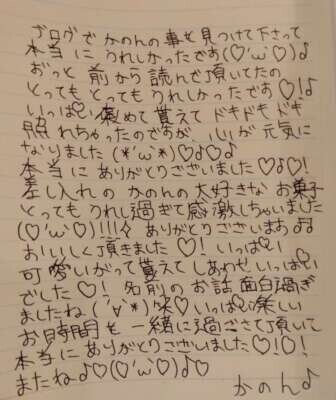 ブログで かのんの事を見つけて下さって
本当に うれしかったです(♡'ω'♡)♪
ずっと 前から読んで頂いてたの
とっても とってもうれしかったです♡!♪
いっぱい 褒めて貰えて ドキドキ ドキ
照れちゃったのですが 心が 元気に
なりました(*'ω'*)♡♪♡♪
本当に ありがとうございました♡♪♡!
差し入れの かのんの大好きな お菓子
とっても うれし過ぎて感激しちゃいました
(♡'ω'♡)!!!✧ ありがとうございます♪♪
おいしく頂きました♡! いっぱい
可愛いがって貰えて しあわせいっぱい
でした♡! 名前のお話 面白過ぎ
ましたね(*'∀'*)笑♡いっぱい楽しい
お時間を 一緒に過ごさせて頂いて
本当にありがとうございました♡!♡!
またね♪♡(♡'ω'♡)♪♡
かのん♪